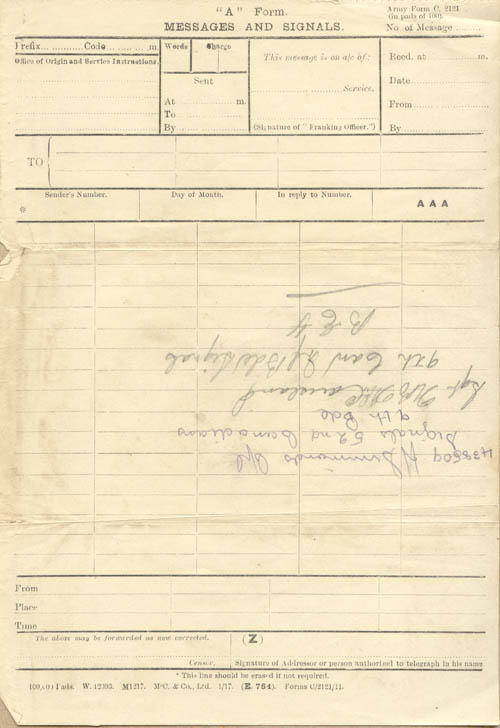 "A" Form.
MESSAGES AND SIGNALS.
Army Form C. 2121
(In pads of 100).
No. of Message
Prefix Code m.
Office of Origin and Service Instructions.
Words Charge
Sent
At m.
To
By
This message is on a/c of:
Service.
(Signature of "Franking Officer.")
Recd. at m.
Date
From
By
TO
Sender's Number. Day of Month. In reply to Number. AAA
*
438509 H Simmonds Cpl
Signals 52nd Canadians
9th Bde
Sgt
9th Can Inf Bde Signals
B E F
From
Place
Time
The above may be forwarded as now corrected. (Z)
Censor. Signature of Addressor or person authorised to telegraph in his name
* This line should be erased if not required.
M1217. McC. & Co., Ltd. 1/17. (E. 754). Forms C/2121/11.